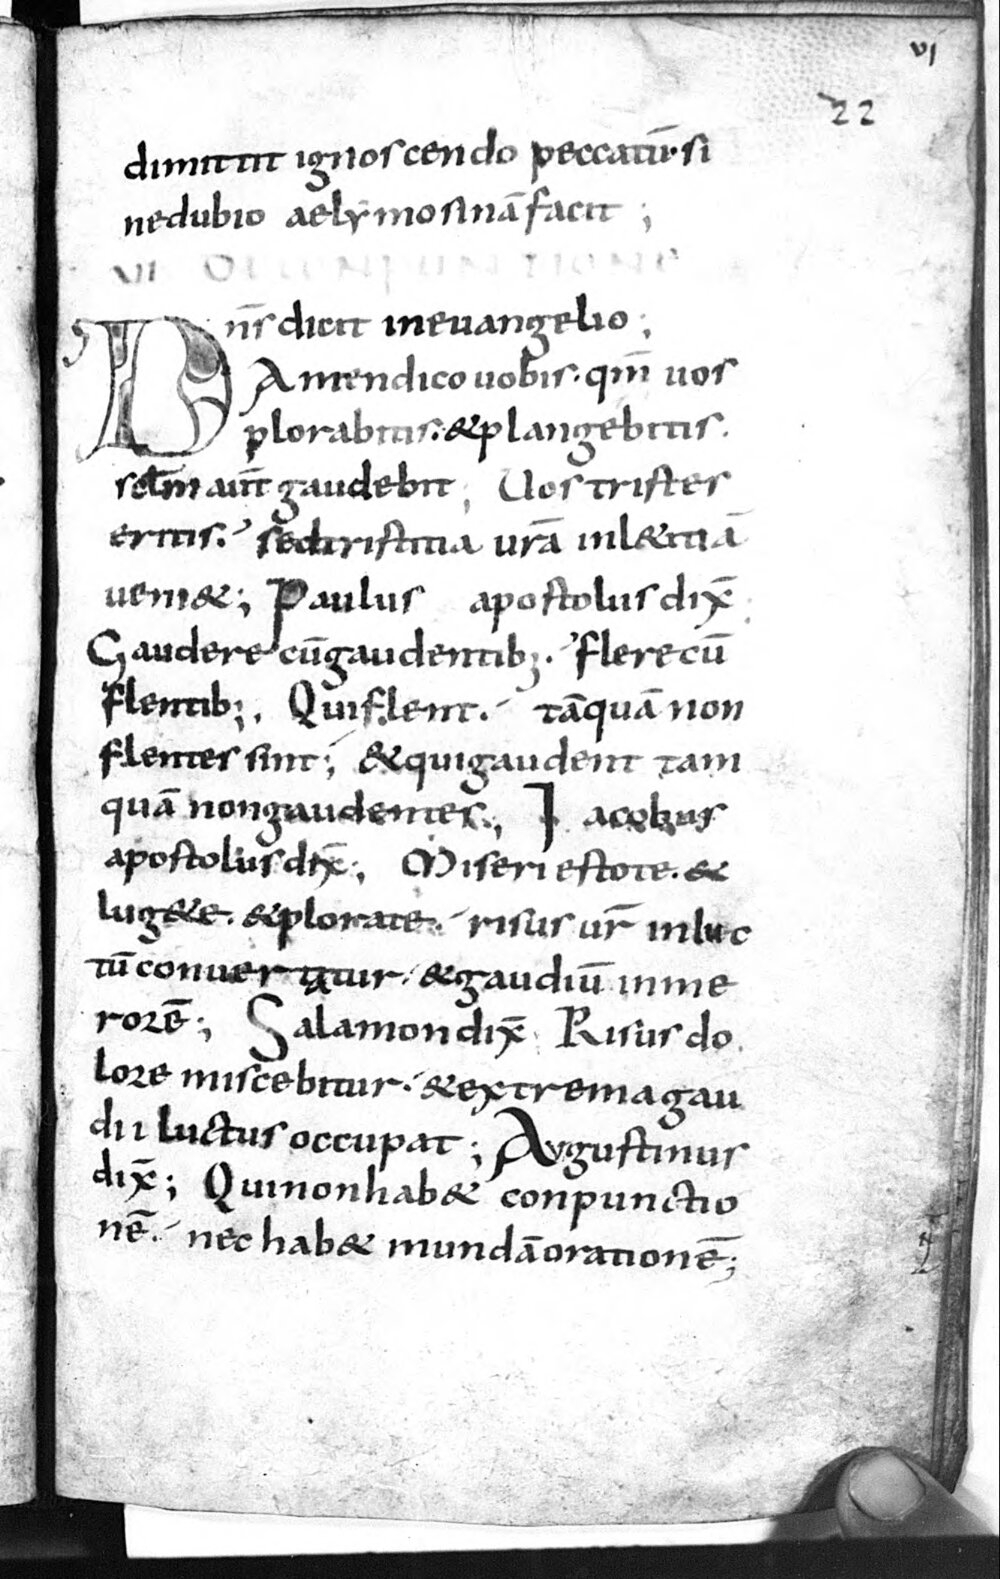 vi
22
dimittit ignoscendo peccatū si
nedubio aelymosinā facit ;
VI DE CONPUNCTIONE
Dn̄s dicit in euangelio ;
Amen dico uobis · qm̄ uos
plorabitis · & plangebitis ·
sc̄lm aut̄ gaudebit ; Uos tristes
eritis · sed tristitia ur̄a in l&itiā
ueni& ; Paulus apostolus dix̄
Gaudere cū gaudentib; · flere cū
flentib; · Qui flent · tāquā non
flentes sint ; & qui gaudent tam
quā non gaudentes ; Iacobus
apostolus dix̄ ; Miseri estote · &
lug&e · & plorate · risus ur̄ in luc
tū conuertatur · & gaudiū in me
rorē ; Salamon dix̄ Risus do
lore miscebitur · & extrema gau
dii luctus occupat ; Augustinus
dix̄ ; Qui non hab& conpunctio
nē · nec hab& mundā orationē ;